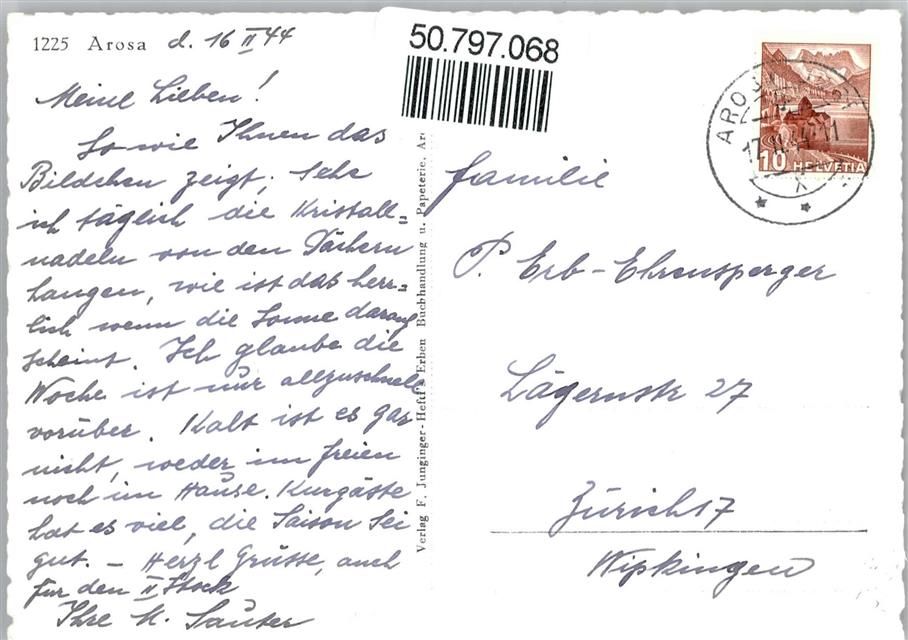 1225 Arosa d. 16 II 44
50.797.068
Meine Lieben!
So wie Ihnen das
Bildchen zeigt; sehe
ich täglich die Kristall=
nadeln von den Dächern
hangen, wie ist das herr=
lich wenn die Sonne darauf
scheint. Ich glaube die
Woche ist nur allzuschnell
vorüber. Kalt ist es gar
nicht, weder im freien
noch im Hause. Kurgäste
hat es viel, die Saison sei
gut. – Herzl Grüsse, auch
für den II Stock
Ihre M. Sauter
Verlag F. Junginger-Hefti's Erben Buchhandlung u. Papeterie, Ar
10 HELVETIA
ARO
17. II. 44
familie
P. Erb-Ehrensperger
Lägernstr 27
Zürich 7
Wipkingen